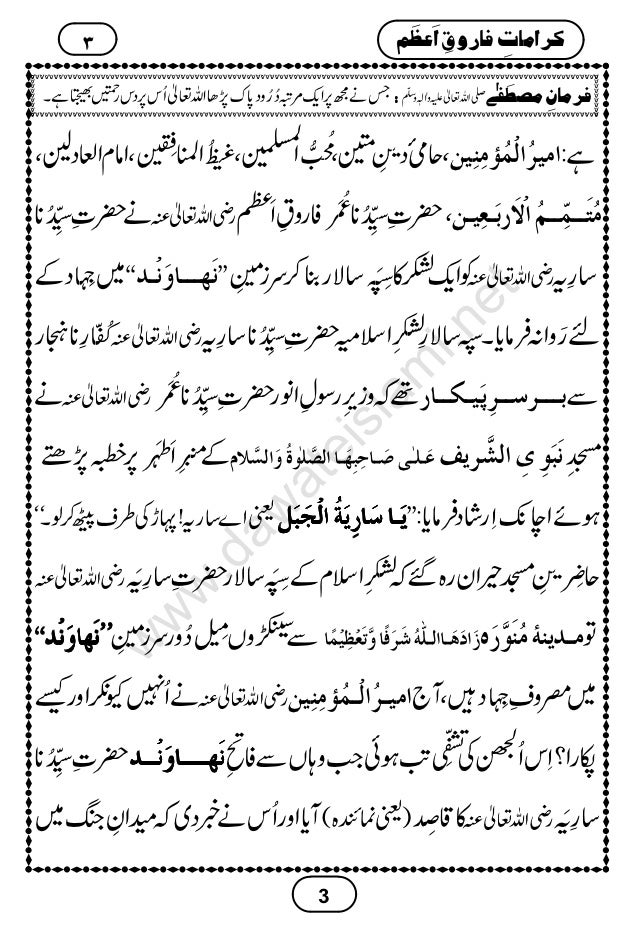 ۳
کراماتِ فاروقِ اَعظَم
فرمانِ مصطَفٰے صلی اللہ تعالیٰ علیہ واٰلہٖ وسلّم : جس نے مجھ پر ایک مرتبہ دُرُود پاک پڑھا اللہ تعالیٰ اُس پر دس رحمتیں بھیجتا ہے۔
ہے: امیرُ الْمُؤمِنِین، حامیٔ دِینِ متین، مُحبُّ الْمسلمین، غَیظُ المنافقین، امام العادلین،
مُتَمِّمُ الْاَرْبَعِین، حضرتِ سیِّدُنا عُمَر فاروقِ اَعظم رضی اللہ تعالیٰ عنہ نے حضرتِ سیِّدُنا
سارِیہ رضی اللہ تعالیٰ عنہ کو ایک لشکر کا سِپہ سالار بنا کر سرزمینِ ’’نَھاوَنْد‘‘ میں جِہاد کے
لئے رَوانہ فرمایا۔ سپہ سالارِ لشکرِ اسلامیہ حضرتِ سیِّدُنا ساریہ رضی اللہ تعالیٰ عنہ کُفّارِ ناہنجار
سے برسرِپَیکار تھے کہ وزیرِ رسولِ انور حضرتِ سیِّدُنا عُمَر رضی اللہ تعالیٰ عنہ نے
مسجدِ نَبَوِیِ الشَّریف عَلٰی صَاحِبِهَا الصَّلٰوةُ وَالسَّلام کے منبرِ اَطہَر پر خطبہ پڑھتے
ہوئے اچانک اِرشاد فرمایا: ’’یَا سَارِیَةُ الْجَبَل یعنی اے ساریہ! پہاڑ کی طرف پیٹھ کر لو۔‘‘
حاضرینِ مسجد حیران رہ گئے کہ لشکرِ اسلام کے سِپہ سالار حضرتِ سارِیَہ رضی اللہ تعالیٰ عنہ
تو مدینۂ مُنَوَّرَہ زَادَهَا اللّٰهُ شَرَفًا وَّتَعْظِیْمًا سے سینکڑوں میل دُور سرزمینِ ’’نَھاوَنْد‘‘
میں مصروفِ جِہاد ہیں، آج امیرُ الْمُؤمِنِین رضی اللہ تعالیٰ عنہ نے اُنہیں کیونکر اور کیسے
پکارا؟ اِس اُلجھن کی تشفّی تب ہوئی جب وہاں سے فاتِحِ نَھاوَنْد حضرتِ سیِّدُنا
سارِیَہ رضی اللہ تعالیٰ عنہ کا قاصِد (یعنی نمائندہ) آیا اور اُس نے خبر دی کہ میدانِ جنگ میں
3
www.dawateislami.net